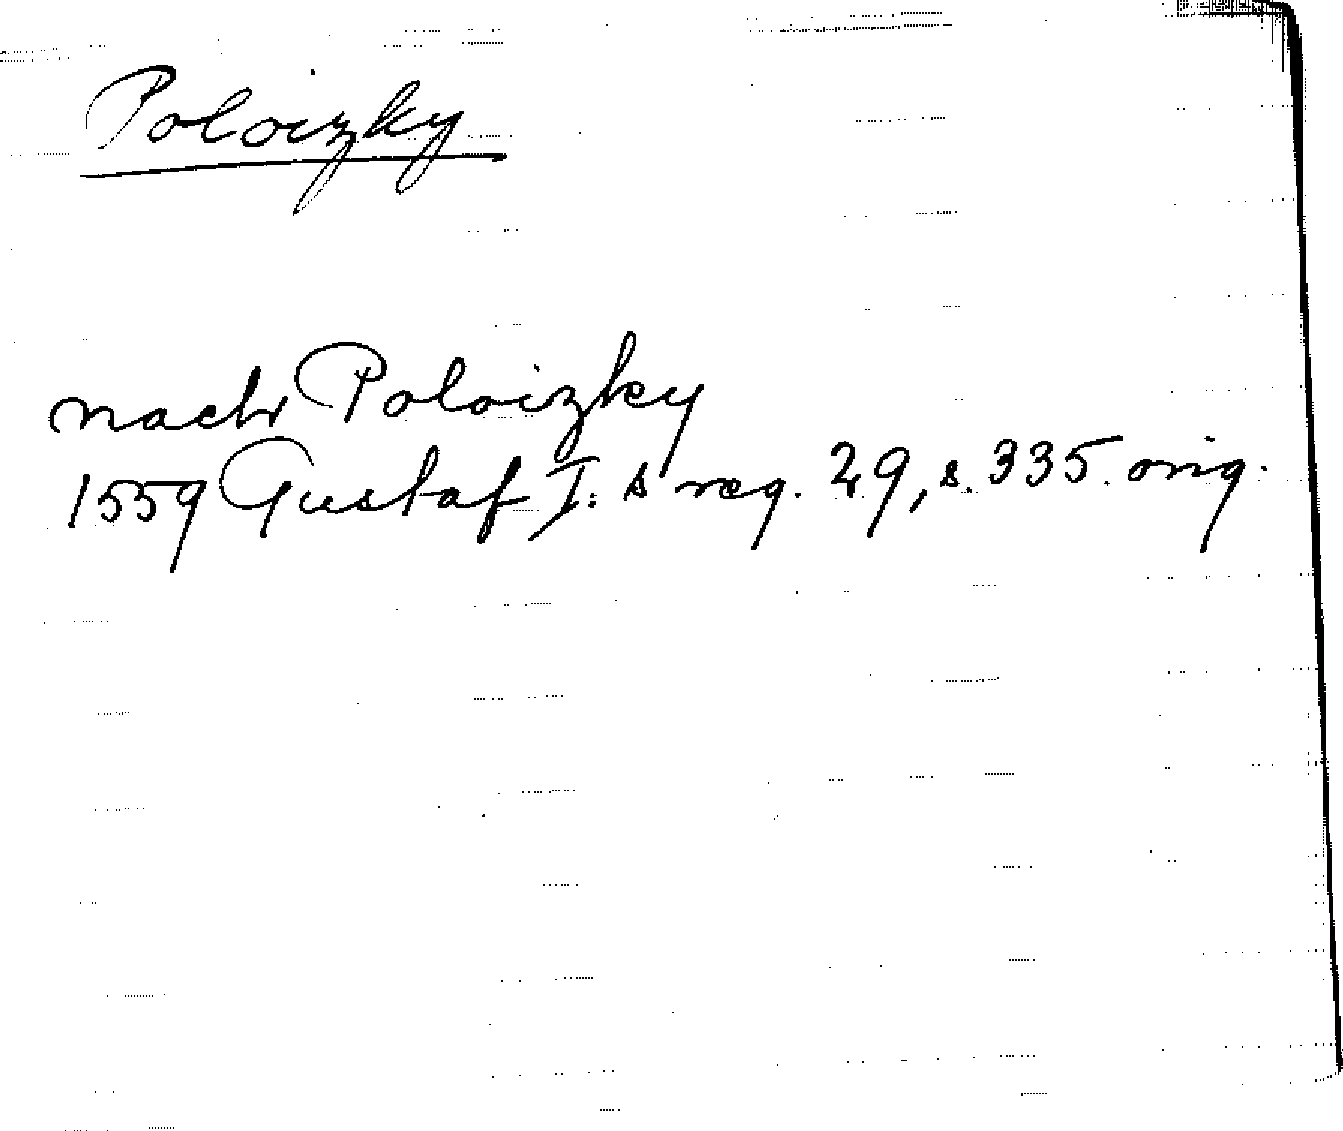 Poloizky
nach Poloizky
1559 Gustaf I:s reg. 29, s. 335. orig.